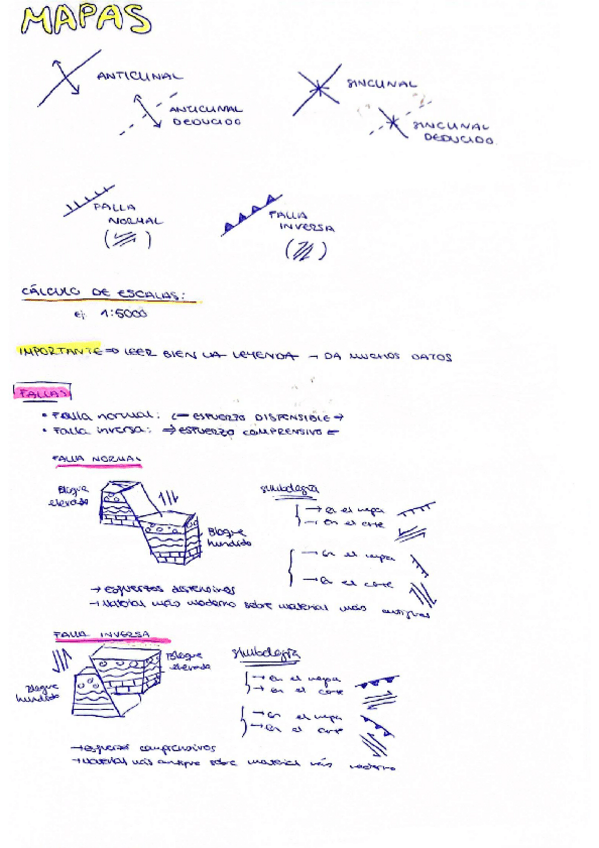 MAPAS
ANTICLINAL
SINCLINAL
ANTICLINAL
DEDUCIDO
SINCLINAL
DEDUCIDO
FALLA
NORMAL
FALLA
INVERSA
CÁLCULO DE ESCALAS:
ej. 1:5000
IMPORTANTE ⇒ LEER BIEN LA LEYENDA → DA MUCHOS DATOS
FALLAS
• Falla normal: ← ESFUERZO DISTENSIBLE →
• Falla inversa: ⇒ ESFUERZO COMPRENSIVO ⇐
FALLA NORMAL
Bloque
elevado
Bloque
hundido
simbología
→ en el mapa
→ en el corte
→ en el mapa
→ en el corte
→ esfuerzos distensivos
→ Material más moderno sobre material más antiguo
FALLA INVERSA
Bloque
elevado
Bloque
hundido
simbología
→ en el mapa
→ en el corte
→ en el mapa
→ en el corte
→ esfuerzos comprensivos
→ Material más antiguo sobre material más moderno